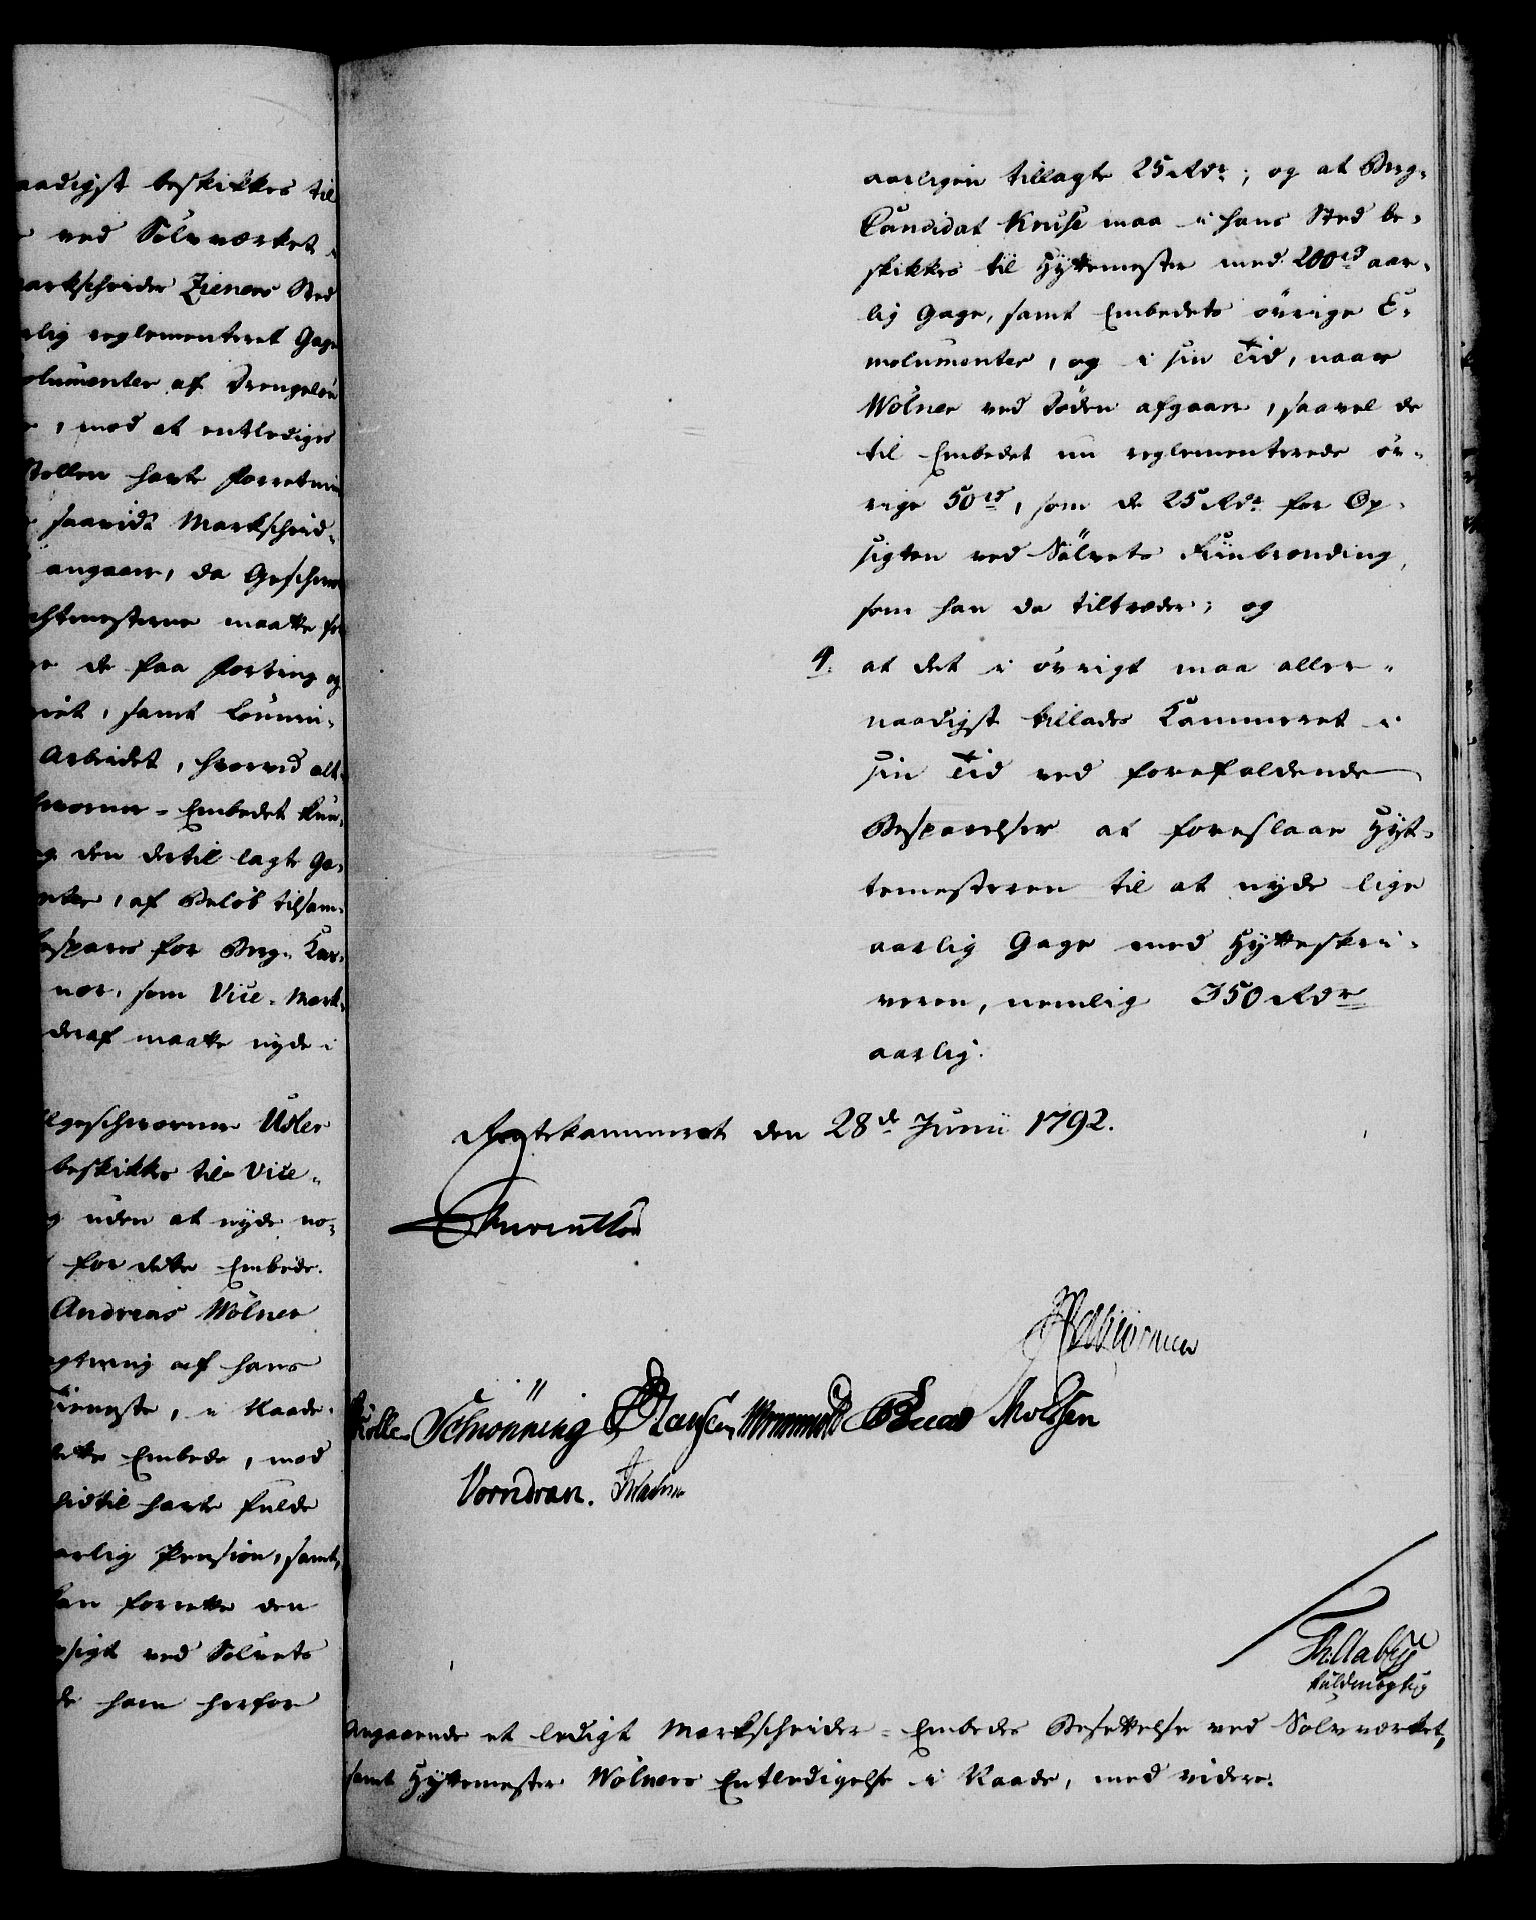 aadigst beskikkes til
ved Sölvværket i
arkscheider Zieners Sted
rlig reglementeret Gage
olumenter af
, mod at entlediges
Stollen havte Forretnin
saavidt Markscheid-
angaaer, da Geschwor
maatte
de faa Forting og
samt
Arbeidet, hvorved alt
Embedet kun-
den dertil lagte Ga-
af Beløb tilsam-
spares for Berg-
ner, som Vice-Mark-
deraf maatte nyde i
geschworner Usler
beskikkes til Vice-
uden at nyde no-
for dette Embede.
Andreas Wölner
af hans
Tieneste, i Naade
Embede, mod
hidtil havte fulde
aarlig Pension, samt
forrette den
sigt ved Sølvets
ham herfor
aarligen tillagte 25 Rdr; og at Berg-
Candidat Kruse maa i hans Sted be-
skikkes til Hyttemester med 200 rd aar-
lig Gage, samt Embedets övrige E-
molumenter, og i sin Tid, naar
Wölner ved Döden afgaaer, saavel de
til Embedet nu reglementerede öv-
rige 50 rd, som de 25 Rdr for Op-
sigten ved Sölvets Fiinbrænding,
som han da tiltræder; og
4. at det i övrigt maa aller-
naadigst tillades Kammeret i
sin Tid ved forefaldende
Besparelser at foreslaae Hyt-
temesteren til at nyde lige
aarlig Gage med Hytteskri-
veren, nemlig 350 Rdr
aarlig.
Rentekammeret den 28de Junii 1792.
Schönning Hansen Wormskiold Moldsen
Vorndran.
Th: Aabye
fuldmægtig
Angaaende et ledigt Markscheider-Embedes Besettelse ved Sölvværket,
samt Hyttemester Wölners Entledigelse i Naade, med videre.